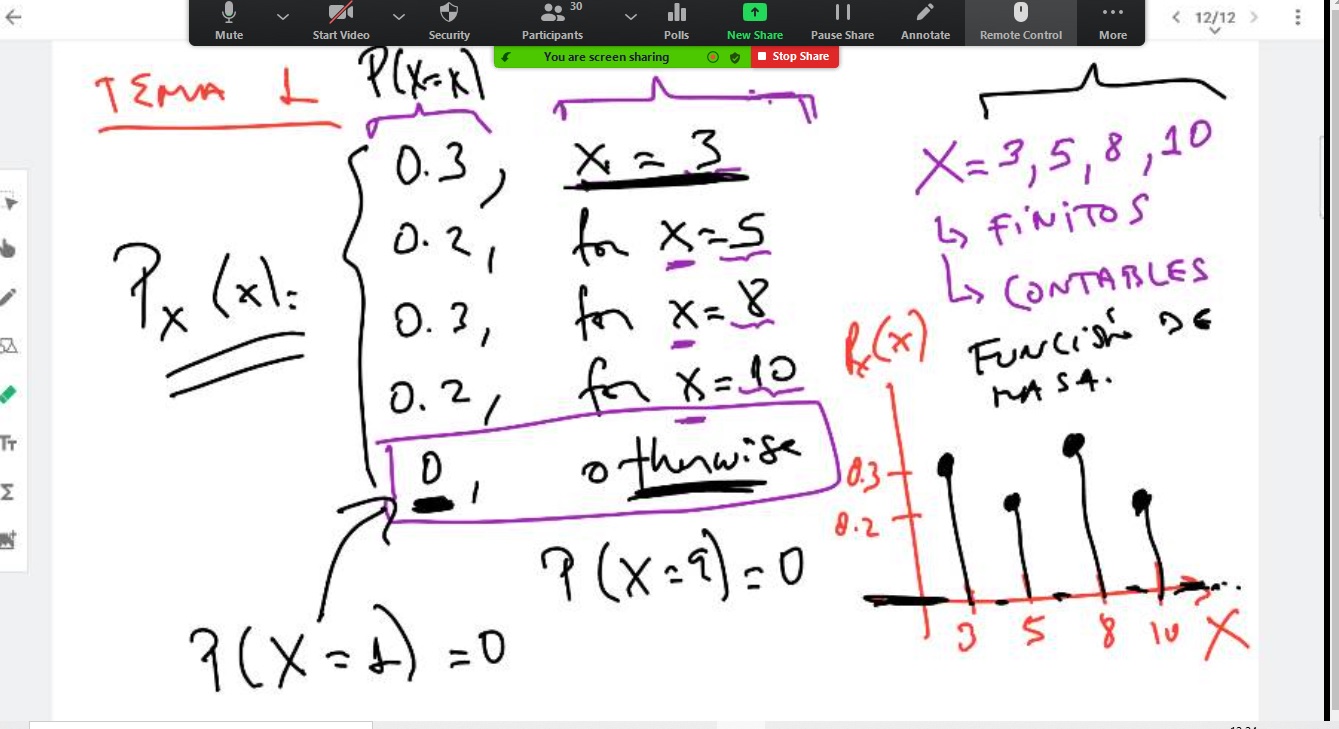 30
Mute
Start Video
Security
Participants
Polls
New Share
Pause Share
Annotate
Remote Control
More
12/12
You are screen sharing
Stop Share
TEMA 1
P(X=x)
Px(x):
0.3, x = 3
0.2, for x=5
0.3, for x=8
0.2, for x=10
0, otherwise
P(X=9)=0
P(X=1)=0
X=3,5,8,10
↳ FINITOS
↳ CONTABLES
FUNCIÓN DE
MASA.
Px(x)
0.3
0.2
3 5 8 10 X
Tт
Σ